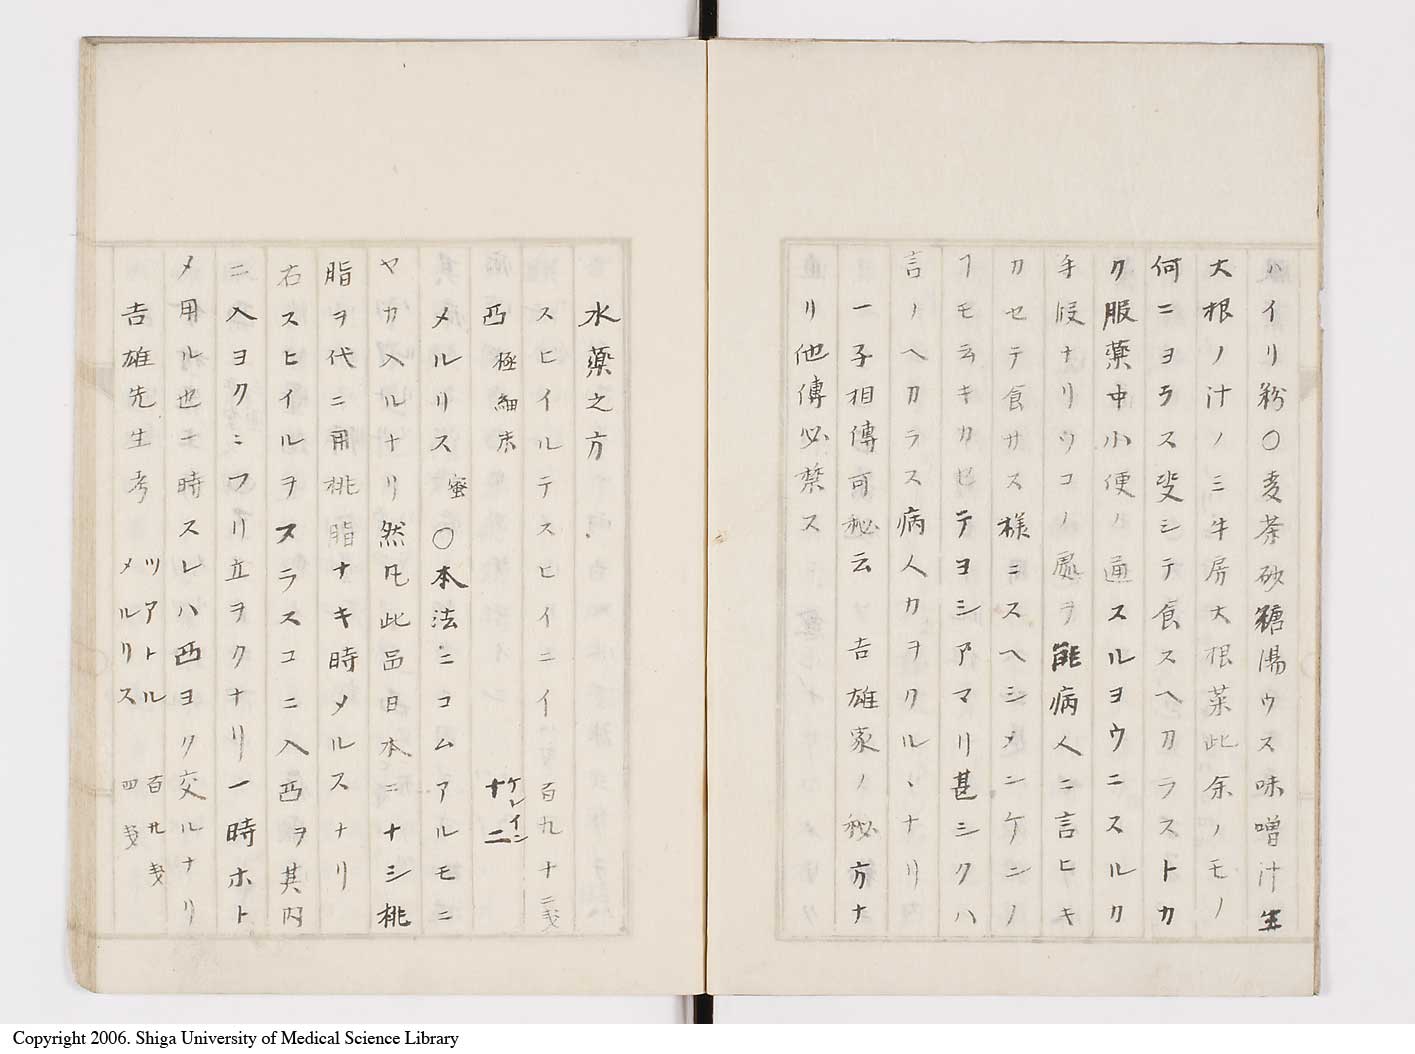 ハイリ粉〇麦茶砂糖湯ウス味噌汁生
大根ノ汁ノミ牛房大根菜此余ノモノ
何ニヨラス堅シテ食スヘカラストカ
ク服薬中小便ノ通スルヨウニスルク
手段ナリウコノ處ヲ能病人ニ言ヒキ
カセテ食サス様ニスヘシメンケンノ
フモ云キカセテヨシアマリ甚シクハ
言ノヘカラス病人カヲクルヽナリ
一子相傳可秘云 吉雄家ノ秘方ナ
リ他傳必禁ス
水薬之方
スヒイルテスヒイニイ 百九十二戔
西 極細末 ケレイン 十二
メルリス 蜜 〇本法ニコムアルモニ
ヤカ入ルナリ然凡此品日本ニナシ桃
脂ヲ代ニ用桃脂ナキ時メルスナリ
右スヒイルヲヌラスコニ入西ヲ其内
ニ入ヨクニフリ立ヲクナリ一時ホト
メ用ル也二時スレハ西ヨク交ルナリ
吉雄先生考 ツアトル 百九戔
メルリス 四戔
Copyright 2006. Shiga University of Medical Science Library